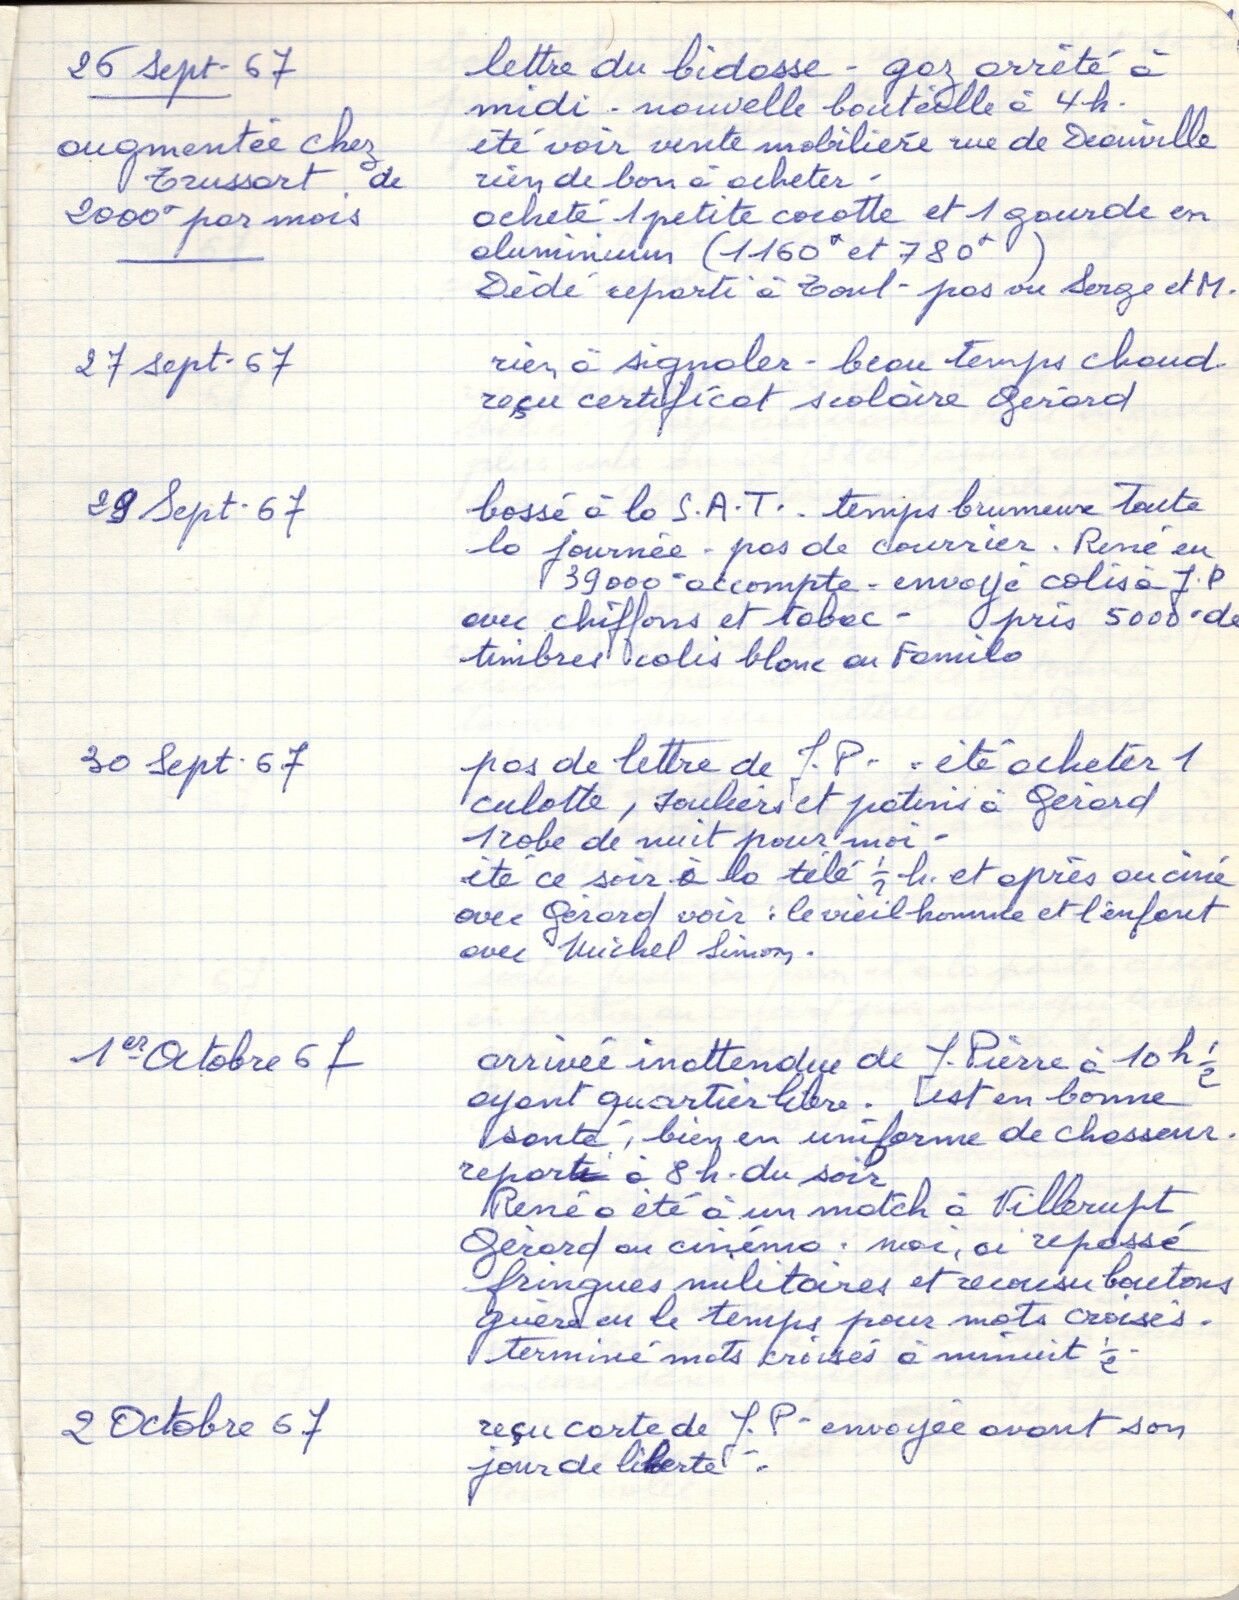 26 Sept. 67
augmentée chez
Trussart de
2000F par mois
lettre du bidasse - gaz arrêté à
midi - nouvelle bouteille à 4h.
été voir vente mobilière rue de Deauville
rien de bon à acheter -
acheté 1 petite cocotte et 1 gourde en
aluminium (1160F et 780F)
Dédé reparti à Toul - pas vu Serge et M.
27 sept. 67
rien à signaler - beau temps chaud.
reçu certificat scolaire Gérard
29 Sept. 67
bossé à la S.A.T. - temps brumeux toute
la journée - pas de courrier. René eu
39000 - accompte - envoyé colis à J.P
avec chiffons et tabac - pris 5000 - de
timbres colis blanc au Familo
30 Sept. 67
pas de lettre de J.P. - été acheter 1
culotte, souliers et patins à Gérard
1 robe de nuit pour moi -
été ce soir à la télé ½ h. et après au ciné
avec Gérard voir : le vieil homme et l'enfant
avec Michel Simon.
1er Octobre 67
arrivée inattendue de J. Pierre à 10 h ½
ayant quartier libre. est en bonne
santé, bien en uniforme de chasseur.
reparti à 8 h. du soir
René a été à un match à Villerupt
Gérard au cinéma. moi, ai repassé
fringues militaires et recousu boutons
guère eu le temps pour mots croisés.
terminé mots croisés à minuit ½ -
2 Octobre 67
reçu carte de J.P - envoyée avant son
jour de liberté -.